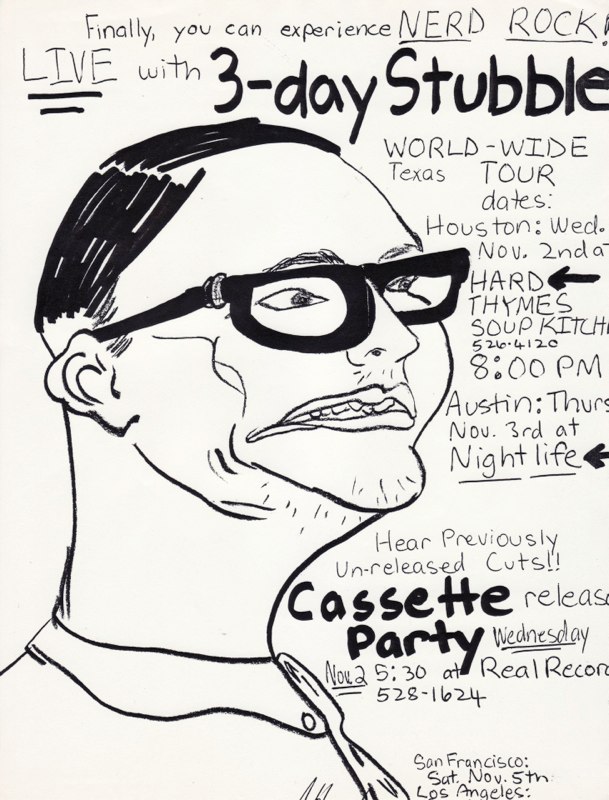 Finally, you can experience NERD ROCK!
LIVE with 3-day Stubble
WORLD-WIDE
Texas TOUR
dates:
Houston: Wed.
Nov. 2nd at
HARD
THYMES
SOUP KITCHE
526-4120
8:00 PM
Austin: Thurs
Nov. 3rd at
Nightlife
Hear Previously
Un-released Cuts!!
Cassette release
Party Wednesday
Nov. 2 5:30 at Real Record
528-1624
San Francisco:
Sat. Nov. 5th
Los Angeles: